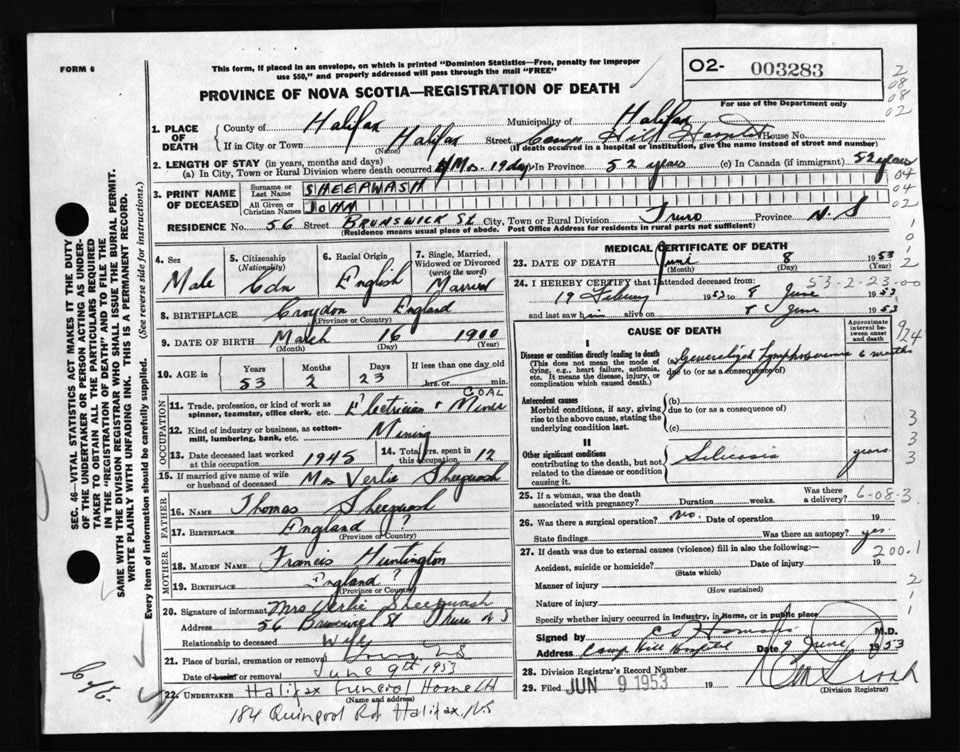 FORM 6
This form, if placed in an envelope, on which is printed "Dominion Statistics—Free, penalty for improper
use $50," and properly addressed will pass through the mail "FREE"
PROVINCE OF NOVA SCOTIA—REGISTRATION OF DEATH
O2- 003283
For use of the Department only
2
08
08
02
1. PLACE OF DEATH
County of Halifax Municipality of Halifax
If in City or Town Halifax Street Camp Hill Hospital House No.
(Name) (If death occurred in a hospital or institution, give the name instead of street and number)
2. LENGTH OF STAY (in years, months and days)
(a) In City, Town or Rural Division where death occurred Mos. 19 days In Province 52 years (c) In Canada (if immigrant) 52 years
3. PRINT NAME OF DECEASED
Surname or Last Name SHEEPWASH
All Given or Christian Names JOHN
RESIDENCE No. 56 Street BRUNSWICK St. City, Town or Rural Division Truro Province N.S
(Residence means usual place of abode. Post Office Address for residents in rural parts not sufficient)
04
04
02
1
0
1
2
4. Sex Male
5. Citizenship (Nationality) Cdn
6. Racial Origin English
7. Single, Married, Widowed or Divorced (write the word) Married
8. BIRTHPLACE Croydon England
(Province or Country)
9. DATE OF BIRTH March 16 1900
(Month) (Day) (Year)
10. AGE in Years 53 Months 2 Days 23 If less than one day old hrs. or min.
OCCUPATION
11. Trade, profession, or kind of work as spinner, teamster, office clerk, etc. Electrician & COAL Miner
12. Kind of industry or business, as cotton-mill, lumbering, bank, etc. Mining
13. Date deceased last worked at this occupation 1945
14. Total yrs. spent in this occupation 12
15. If married give name of wife or husband of deceased Mrs Verlie Sheepwash
FATHER
16. Name Thomas Sheepwash
17. Birthplace England ?
(Province or Country)
MOTHER
18. MAIDEN NAME Francis Huntington
19. BIRTHPLACE England ?
(Province or Country)
20. Signature of informant Mrs Verlie Sheepwash
Address 56 Brunswick St Truro N S
Relationship to deceased Wife
21. Place of burial, cremation or removal Truro N.S
Date of burial or removal June 9th 1953
22. UNDERTAKER Halifax Funeral Home Ltd
(Name and address)
184 Quinpool Rd Halifax, N.S
MEDICAL CERTIFICATE OF DEATH
23. DATE OF DEATH June 8 1953
(Month) (Day) (Year)
24. I HEREBY CERTIFY that I attended deceased from: 53-2-23-00
19 February 1953 to 8 June 1953
and last saw him alive on 8 June 1953
CAUSE OF DEATH
Approximate interval between onset and death
924
I
Disease or condition directly leading to death
(This does not mean the mode of dying, e.g., heart failure, asthenia, etc. It means the disease, injury, or complication which caused death.)
(a) Generalized Lymphosarcoma 6 months
due to (or as a consequence of)
Antecedent causes
Morbid conditions, if any, giving rise to the above cause, stating the underlying condition last.
(b)
due to (or as a consequence of)
(c)
II
Other significant conditions
contributing to the death, but not related to the disease or condition causing it.
Silicosis years
3
3
3
25. If a woman, was the death associated with pregnancy? Duration weeks. Was there a delivery? 6-08-3
26. Was there a surgical operation? No. Date of operation 19
State findings Was there an autopsy? yes.
27. If death was due to external causes (violence) fill in also the following:— 200.1
Accident, suicide or homicide? Date of injury 19
(State which)
Manner of injury
(How sustained)
Nature of injury
Specify whether injury occurred in industry, in home, or in public place
2
1
1
Signed by M.D.
Address Camp Hill Hospital Date 9 June 1953
28. Division Registrar's Record Number
29. Filed JUN 9 1953 19
(Division Registrar)
SEC. 46—VITAL STATISTICS ACT MAKES IT THE DUTY
OF THE UNDERTAKER OR PERSON ACTING AS UNDER-
TAKER TO OBTAIN ALL THE PARTICULARS REQUIRED
IN THE "REGISTRATION OF DEATH" AND TO FILE THE
SAME WITH THE DIVISION REGISTRAR WHO SHALL ISSUE THE BURIAL PERMIT.
WRITE PLAINLY WITH UNFADING INK. THIS IS A PERMANENT RECORD.
Every item of information should be carefully supplied. (See reverse side for instructions.)